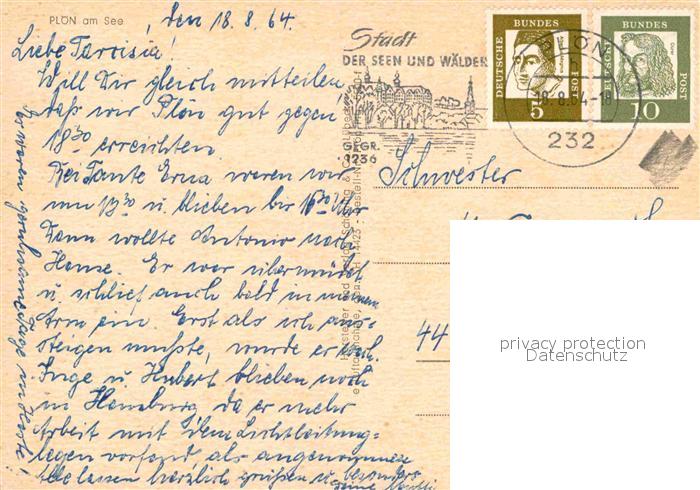 PLÖN am See
, den 18. 8. 64.
Liebe Tarcisia!
Will Dir gleich mitteilen
daß wir Plön gut gegen
18 30 erreichten.
Bei Tante Erna waren wir
um 13 30 u. blieben bis 16 30 Uhr
Dann wollte Antonio nach
Hause. Er war übermüdet
u. schlief auch bald in meinem
Arm ein. Erst als ich aus-
steigen mußte, wurde er wach.
Inge u. Hubert blieben noch
in Hamburg da er mehr
Arbeit mit dem Lichtleitung-
legen vorfand, als angenommen
Alle lassen herzlich grüßen u. besonders
Deine
Es waren geruhsame Tage im Hause!
Stadt
DER SEEN UND WÄLDER
GEGR.
1236
DEUTSCHE BUNDES POST
5
DEUTSCHE BUNDES POST
10
PLÖN
18.8.64-18
232
Schwester
44
privacy protection
Datenschutz